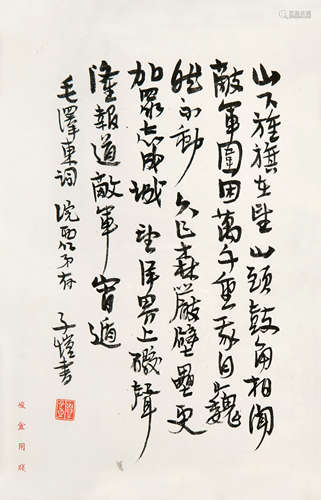 山下旌旗在望山頭鼓角相聞
敵軍圍困萬千重我自巍
然不動久已森嚴壁壘更
加眾志成城望洋界上礮聲
隆報道敵軍宵遁
毛澤東詞 仁弟存 子愷書
用牋